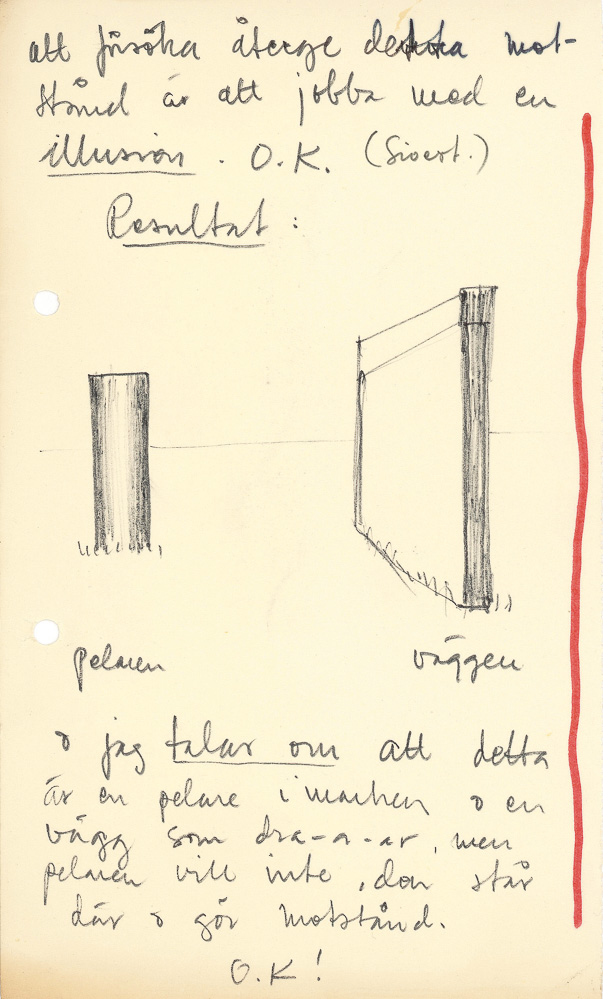 att försöka återge detta mot-
stånd är att jobba med en
illusion. O.K. (Sivert.)
Resultat:
pelaren väggen
o jag talar om att detta
är en pelare i marken o en
vägg som dra-a-ar, men
pelaren vill inte, den står
där o gör motstånd.
O.K!